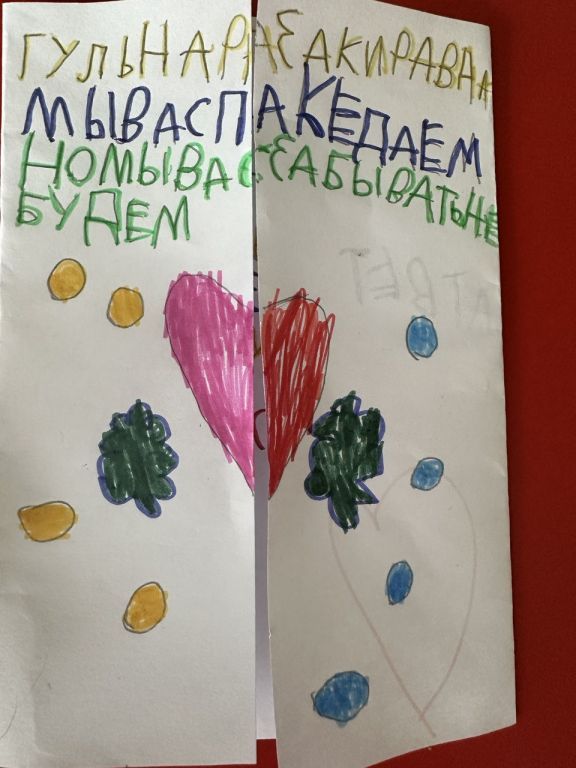 ГУЛЬНАРА ЗАКИРАВАА
МЫ ВАС ПАКЕДАЕМ
НО МЫ ВАС ЗАБЫВАТЬ НЕ
БУДЕМ
АТВЕТ